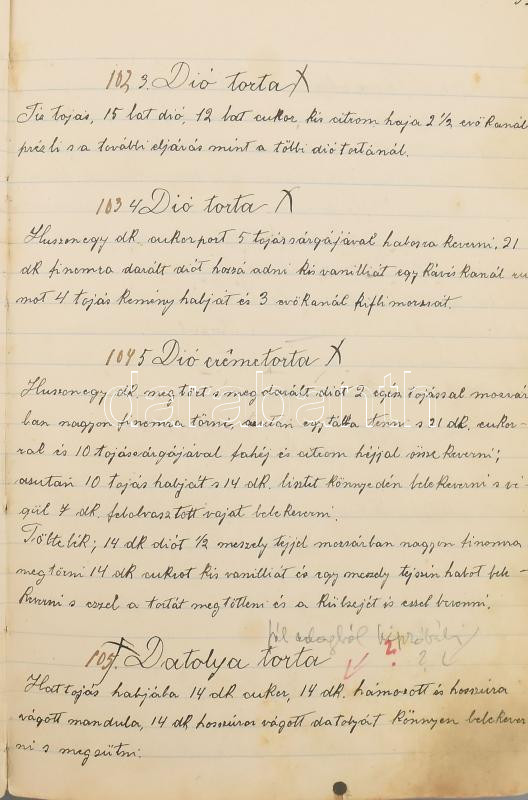 102 3. Dió torta X
Tiz tojás, 15 lat dió, 12 lat cukor, kis citrom haja 2 1/2 evőkanál
prézli s a további eljárás mint a többi diótortánál.
103 4 Dió torta X
Huszonegy dk. cukorport 5 tojássárgájával habosra keverni, 21
dk finomra darált diót hozzá adni kis vanilliát egy kávéskanál ru
mot 4 tojás kemény habját és 3 evőkanál kiflimorzsát.
104 5 Dió crêmetorta X
Huszonegy dk. megtört s megdarált diót 2 egész tojással mozsár
ban nagyon finomra törni, azután egy tálba tenni s 21 dk. cukor-
ral és 10 tojássárgájával fahéj és citrom héjjal össze keverni;
azután 10 tojás habját s 14 dk. lisztet könnyedén bele keverni s vé
gül 7 dk. felolvasztott vajat bele keverni.
Töltelék; 14 dk diót 1/2 meszely tejjel mozsárban nagyon finomra
megtörni 14 dk cukrot kis vanilliát és egy meszely tejszín habot bele-
keverni s ezzel a tortát megtölteni és a külsejét is ezzel bevonni.
fél adagból kipróbálni
105. Datolya torta ? ?
Hat tojás habjába 14 dk cukor, 14 dk. hámozott és hosszúra
vágott mandula, 14 dk hosszúra vágott datolyát könnyen bele kever
ni s megsütni.
darabanth